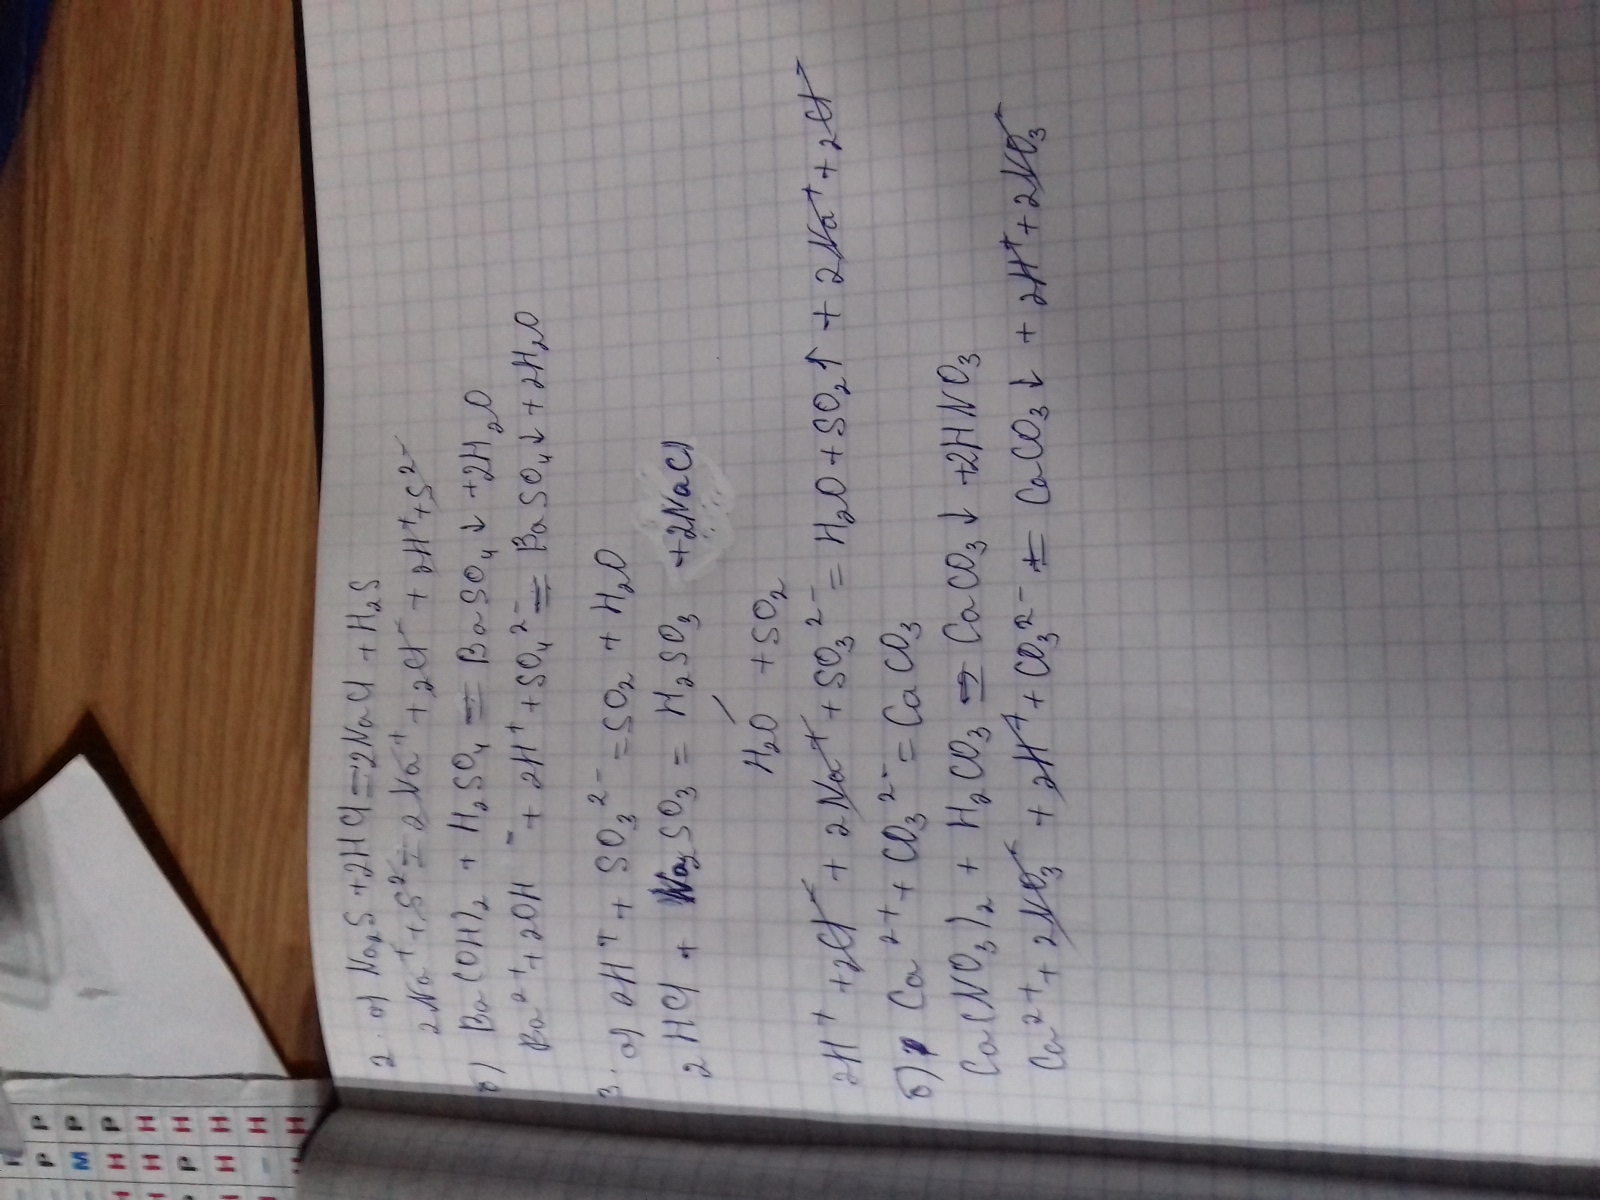 2. а) Na₂S + 2HCl = 2NaCl + H₂S
2Na⁺ + S²⁻ = 2Na⁺ + 2Cl⁻ + 2H⁺ + S²⁻
б) Ba(OH)₂ + H₂SO₄ = BaSO₄↓ + 2H₂O
Ba²⁺ + 2OH⁻ + 2H⁺ + SO₄²⁻ = BaSO₄↓ + 2H₂O
3. а) 2H⁺ + SO₃²⁻ = SO₂ + H₂O
2HCl + Na₂SO₃ = H₂SO₃ + 2NaCl
H₂O + SO₂
2H⁺ + 2Cl⁻ + 2Na⁺ + SO₃²⁻ = H₂O + SO₂↑ + 2Na⁺ + 2Cl⁻
б) Ca²⁺ + CO₃²⁻ = CaCO₃
Ca(NO₃)₂ + H₂CO₃ = CaCO₃↓ + 2HNO₃
Ca²⁺ + 2NO₃⁻ + 2H⁺ + CO₃²⁻ = CaCO₃↓ + 2H⁺ + 2NO₃⁻
P P
M P
H P
H H
P H
H H
– H
H